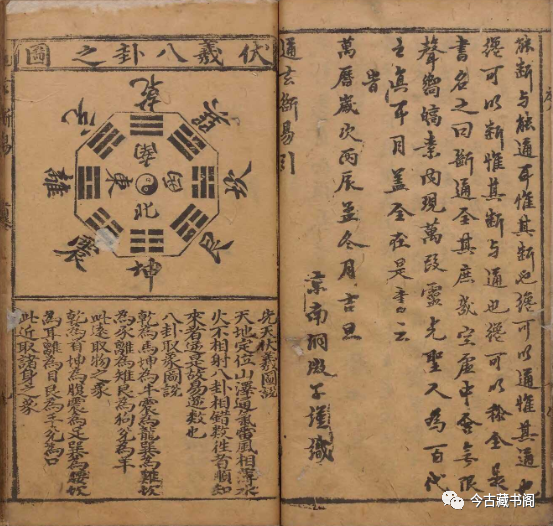 能断与能通耳惟其斷也纔可以通惟其通也
纔可以斷惟其斷与通也纔可以發全是
書名之曰斷通全其庶幾空虛中無限
聲嚮縞素內現萬段靈光聖人為百代
主眞耳目盖全在是書云
旹
萬曆歲次丙辰孟冬月吉旦
京南子謹識
通玄斷易引
伏羲八卦之圖
乾
兌
離
震
坤
艮
坎
巽
南
東
西
北
先天伏羲圖說
天地定位山澤通氣雷風相薄水
火不相射八卦相錯數往者順知
來者逆是故易逆數也
八卦取象圖說
乾為馬坤為牛震為龍巽為雞坎
為豕離為雉艮為狗兌為羊
此遠取物之象
乾為首坤為腹震為足巽為股坎
為耳離為目艮為手兌為口
此近取諸身之象
今古藏书阁